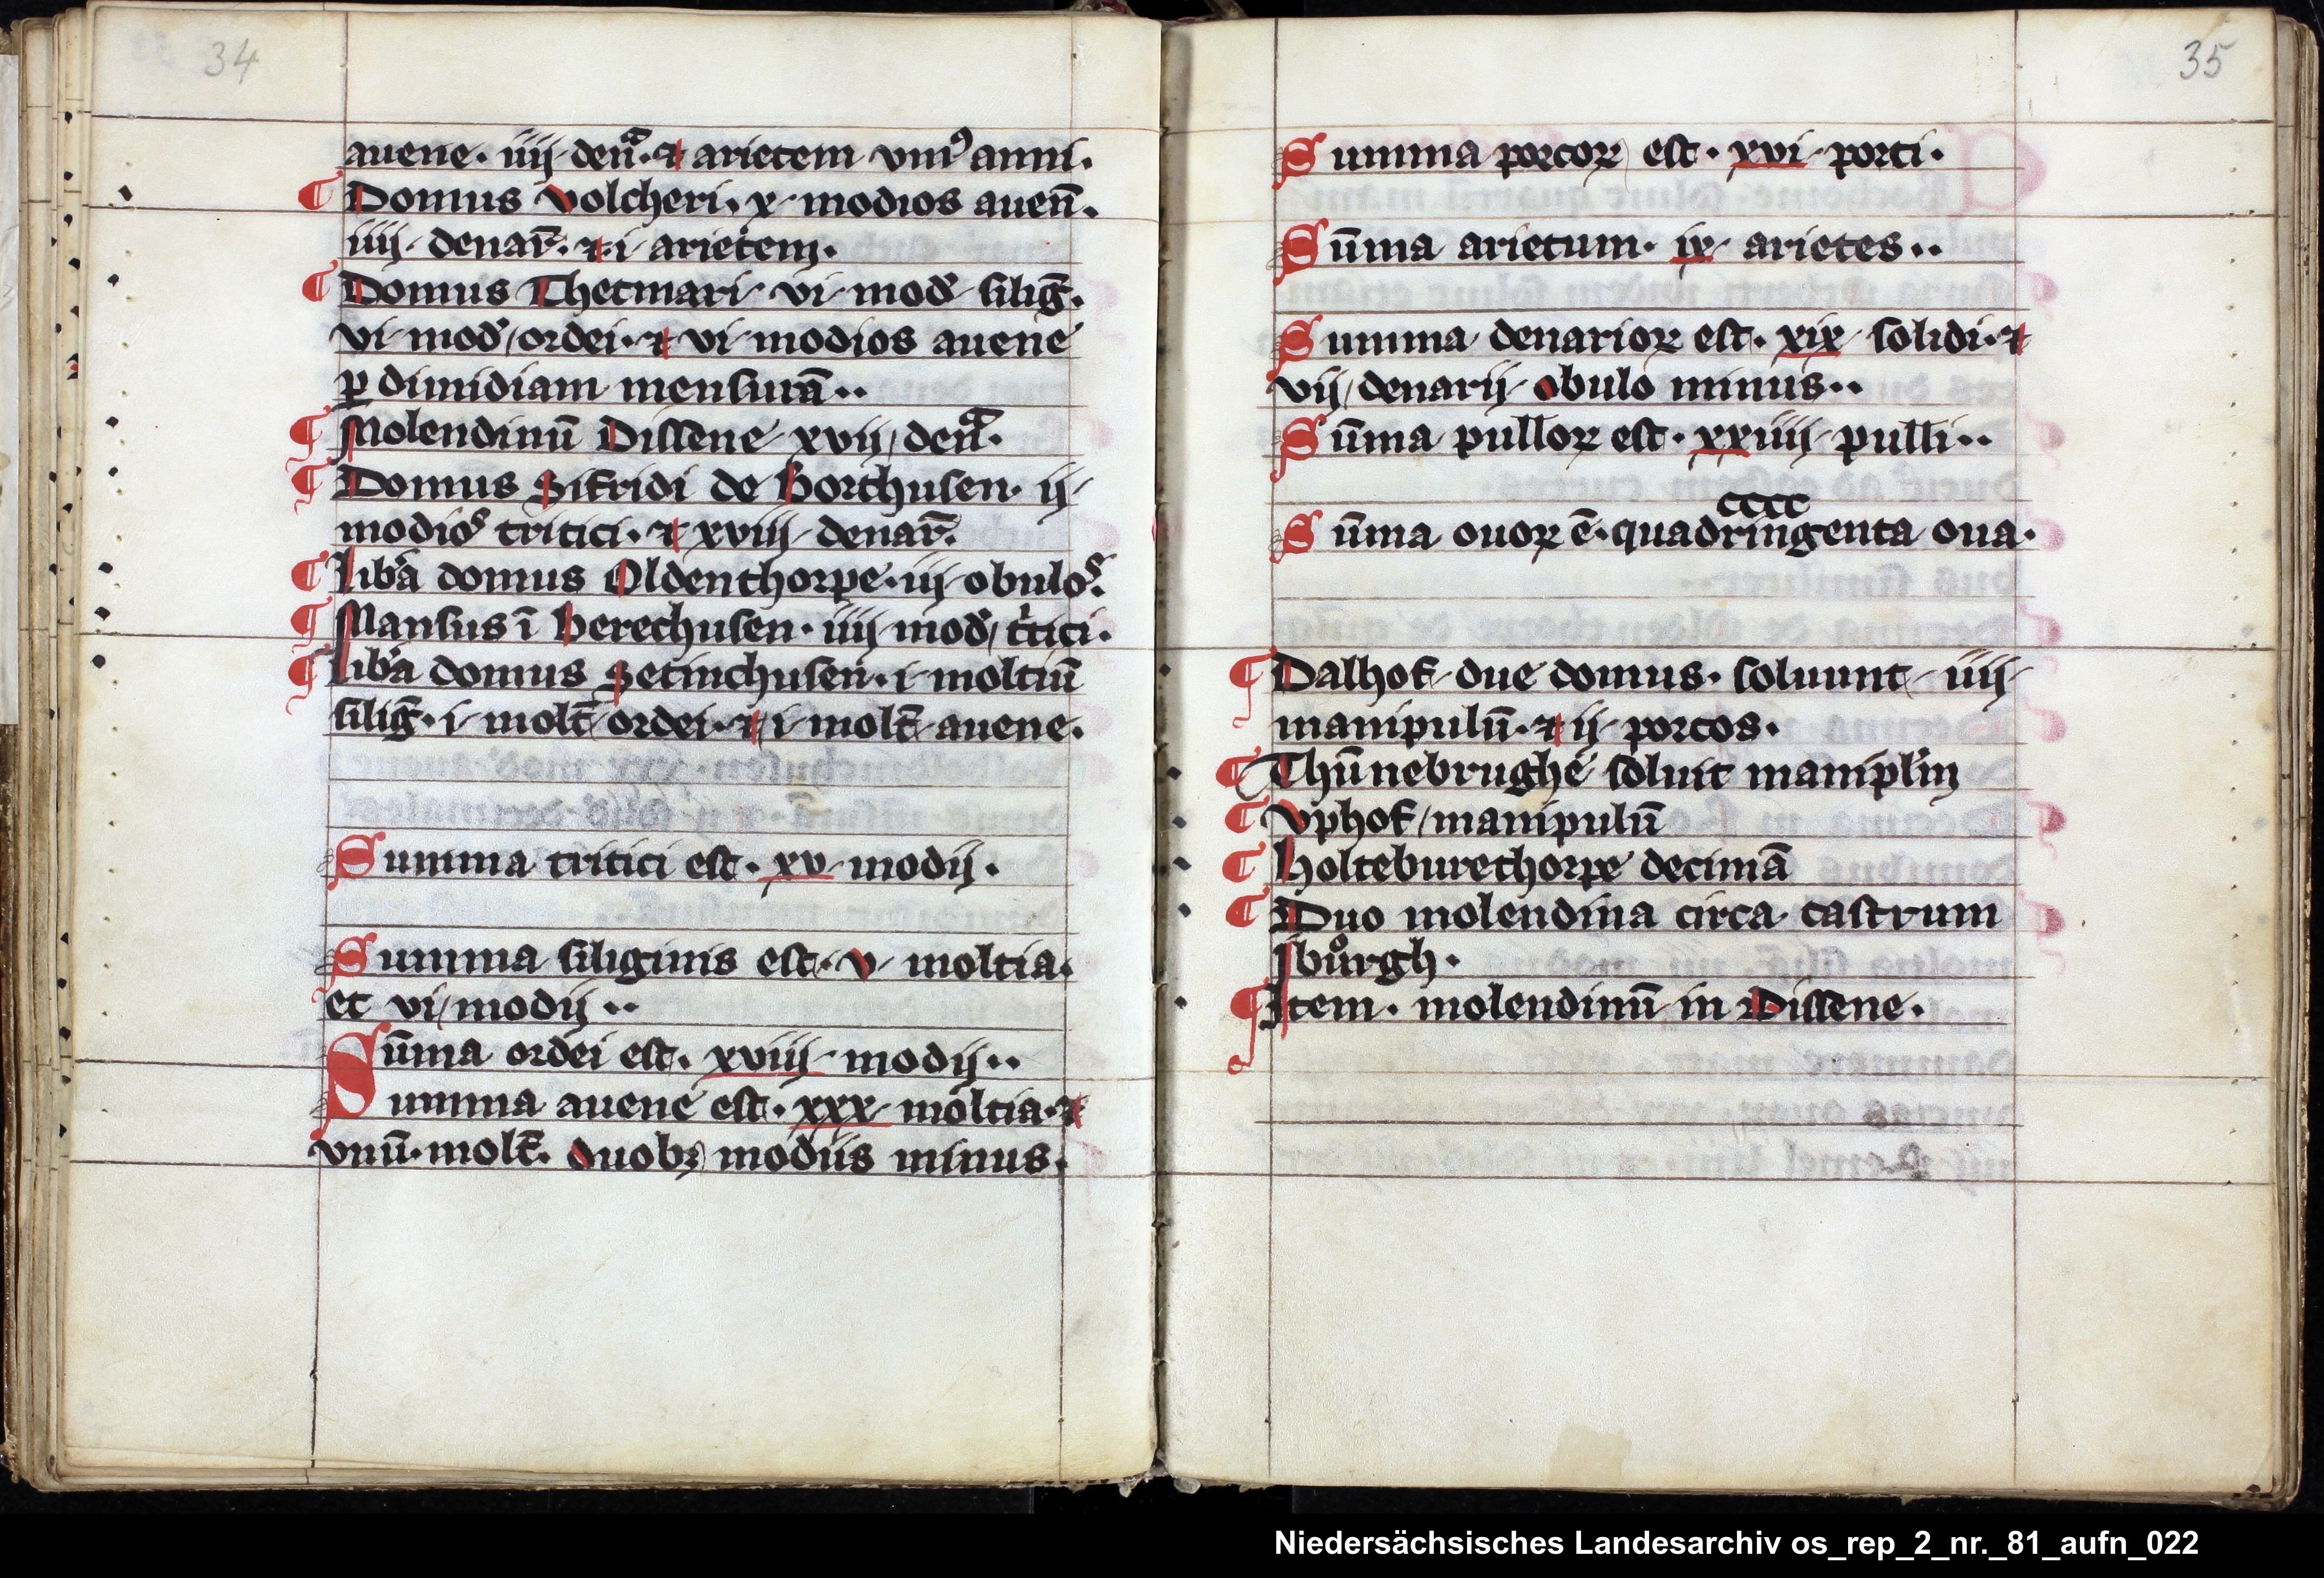 34
auene · iiij · den̄a · ⁊ arietem vniꝰ anni ·
¶ Domus Volcheri · x · modios auen̄ ·
iiij · denar̄ · ⁊ · i · arietem ·
¶ Domus Thetmari · vi · mod̄ · siliḡ ·
vi · mod̄ / ordei · ⁊ vi · modios auene
ꝑ dimidiam mensurā · ·
¶ Molendinū Dissene · xvij / den̄a ·
¶ Domus Sifridi de Borchusen · ij ·
modios tritici · ⁊ xviij · denar̄ ·
¶ Lib̄a domus Oldenthorpe · iij · obulos
¶ Mansus ī Berechusen · iiij · mod̄ / tͥtici ·
¶ Lib̄a domus Setinchusen · i · moltiū
siliḡ · i · molt̄ / ordei · ⁊ i · molt̄ · auene ·
Summa tritici est · xv · modij ·
Summa siliginis est · v · moltia ·
et vi / modij · ·
Sūma ordei est · xviij · modij · ·
Summa auene est · xxx · moltia · ⁊
vnū · molt̄ · duobꝫ modiis minus ·
35
Summa porcoꝝ est · xvi · porci ·
Sūma arietum · ix · arietes · ·
Summa denarioꝝ est · xix · solidi · ⁊
vij / denarij · obulo minus · ·
Sūma pulloꝝ est · xxiiij · pulli · ·
cccc
Sūma ouoꝝ ē · quadringenta oua ·
¶ Dalhof · due domus · soluunt · iiij ·
manipulū · ⁊ ij · porcos ·
¶ Thūnebrughe soluit manipl̄m
¶ Vphof / manipulū
¶ Holteburethorpe decimā
¶ Duo molendina circa castrum
Jbuͦrgh ·
¶ Item · molendinū in Dissene ·
Niedersächsisches Landesarchiv os_rep_2_nr._81_aufn_022